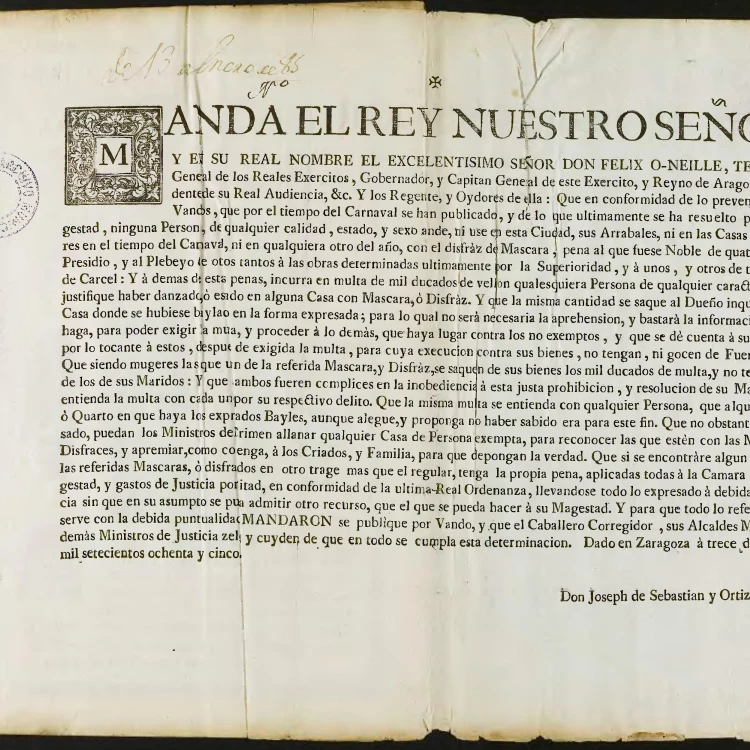 de 13 de Enero de 85
✠
MANDA EL REY NUESTRO SEÑO
Y EN SU REAL NOMBRE EL EXCELENTISIMO SEÑOR DON FELIX O-NEILLE, TE
General de los Reales Exercitos, Gobernador, y Capitan General de este Exercito, y Reyno de Arago
dente de su Real Audiencia, &c. Y los Regente, y Oydores de ella: Que en conformidad de lo preven
Vandos, que por el tiempo del Carnaval se han publicado, y de lo que ultimamente se ha resuelto p
gestad, ninguna Person, de qualquier calidad, estado, y sexo ande, ni use en esta Ciudad, sus Arrabales, ni en las Casas
res en el tiempo del Canaval, ni en qualquiera otro del año, con el disfràz de Mascara, pena al que fuese Noble de quat
Presidio, y al Plebeyo de otos tantos à las obras determinadas ultimamente por la Superioridad, y à unos, y otros de t
de Carcel: Y à demas de esta penas, incurra en multa de mil ducados de vellon qualesquiera Persona de qualquier caract
justifique haber danzado, ò esado en alguna Casa con Mascara, ò Disfràz. Y que la misma cantidad se saque al Dueño inqu
Casa donde se hubiese baylao en la forma expresada; para lo qual no será necesaria la aprehension, y bastará la informaci
haga, para poder exigir la mua, y proceder á lo demàs, que haya lugar contra los no exemptos, y que se dè cuenta à su
por lo tocante à estos, despus de exigida la multa, para cuya execucion contra sus bienes, no tengan, ni gocen de Fuer
Que siendo mugeres las que usen de la referida Mascara, y Disfràz, se saquen de sus bienes los mil ducados de multa, y no te
de los de sus Maridos: Y que ambos fueren complices en la inobediencia à esta justa prohibicion, y resolucion de su Ma
entienda la multa con cada uno por su respectivo delito. Que la misma multa se entienda con qualquier Persona, que alqu
ò Quarto en que haya los exprados Bayles, aunque alegue, y proponga no haber sabido era para este fin. Que no obstant
sado, puedan los Ministros del crimen allanar qualquier Casa de Persona exempta, para reconocer las que estèn con las M
Disfraces, y apremiar, como coenga, à los Criados, y Familia, para que depongan la verdad. Que si se encontràre algun
las referidas Mascaras, ò disfrados en otro trage mas que el regular, tenga la propia pena, aplicadas todas à la Camara
gestad, y gastos de Justicia por mitad, en conformidad de la ultima Real Ordenanza, llevandose todo lo expresado à debida
cia sin que en su asumpto se pua admitir otro recurso, que el que se pueda hacer à su Magestad. Y para que todo lo refe
serve con la debida puntualidad MANDARON se publique por Vando, y que el Caballero Corregidor, sus Alcaldes M
demàs Ministros de Justicia zelen y cuyden de que en todo se cumpla esta determinacion. Dado en Zaragoza à trece d
mil setecientos ochenta y cinco.
Don Joseph de Sebastian y Ortiz